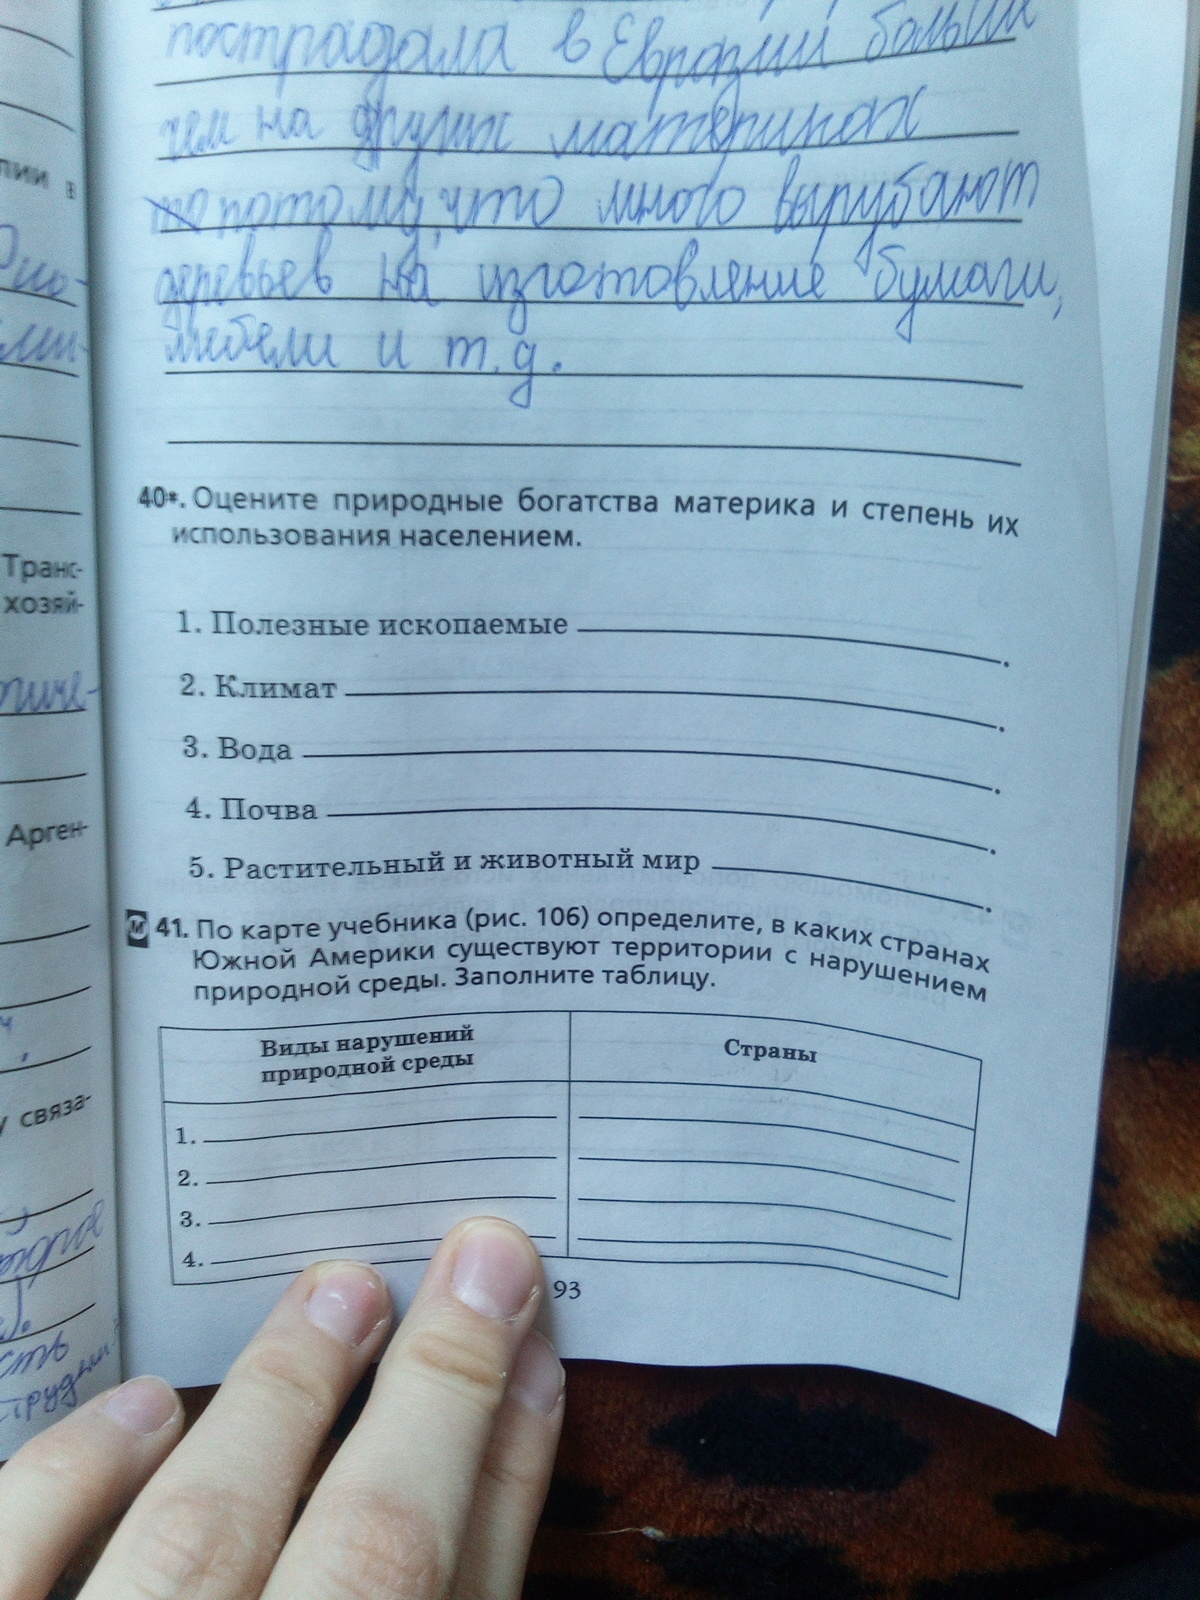 пострадала в Евразии больше
чем на других материках
потому, что много вырубают
деревьев на изготовление бумаги,
мебели и т.д.
40*. Оцените природные богатства материка и степень их
использования населением.
1. Полезные ископаемые
2. Климат
3. Вода
4. Почва
5. Растительный и животный мир
41. По карте учебника (рис. 106) определите, в каких странах
Южной Америки существуют территории с нарушением
природной среды. Заполните таблицу.
Виды нарушений
природной среды
Страны
1.
2.
3.
4.
93
лии в
Транс-
хозяй-
Арген-
у связа-